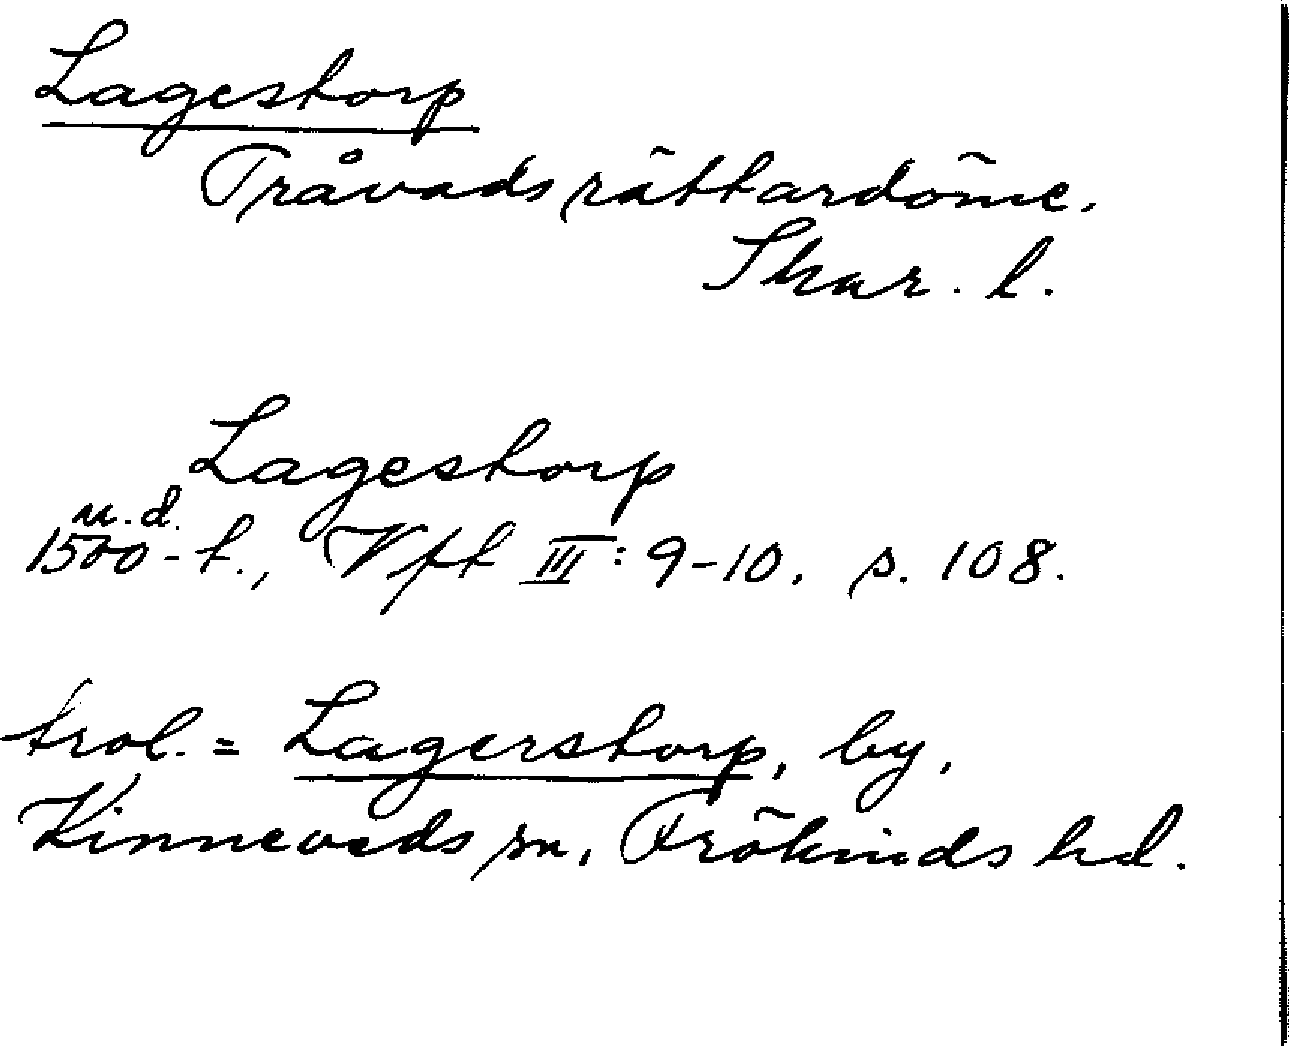 Lagestorp
Tråvads rättardöme.
Skar. l.
Lagestorp
m.d.
1500-t., Vft III: 9-10. s. 108.
trol. = Lagerstorp, by,
Kinneveds sn, Frökinds hd.